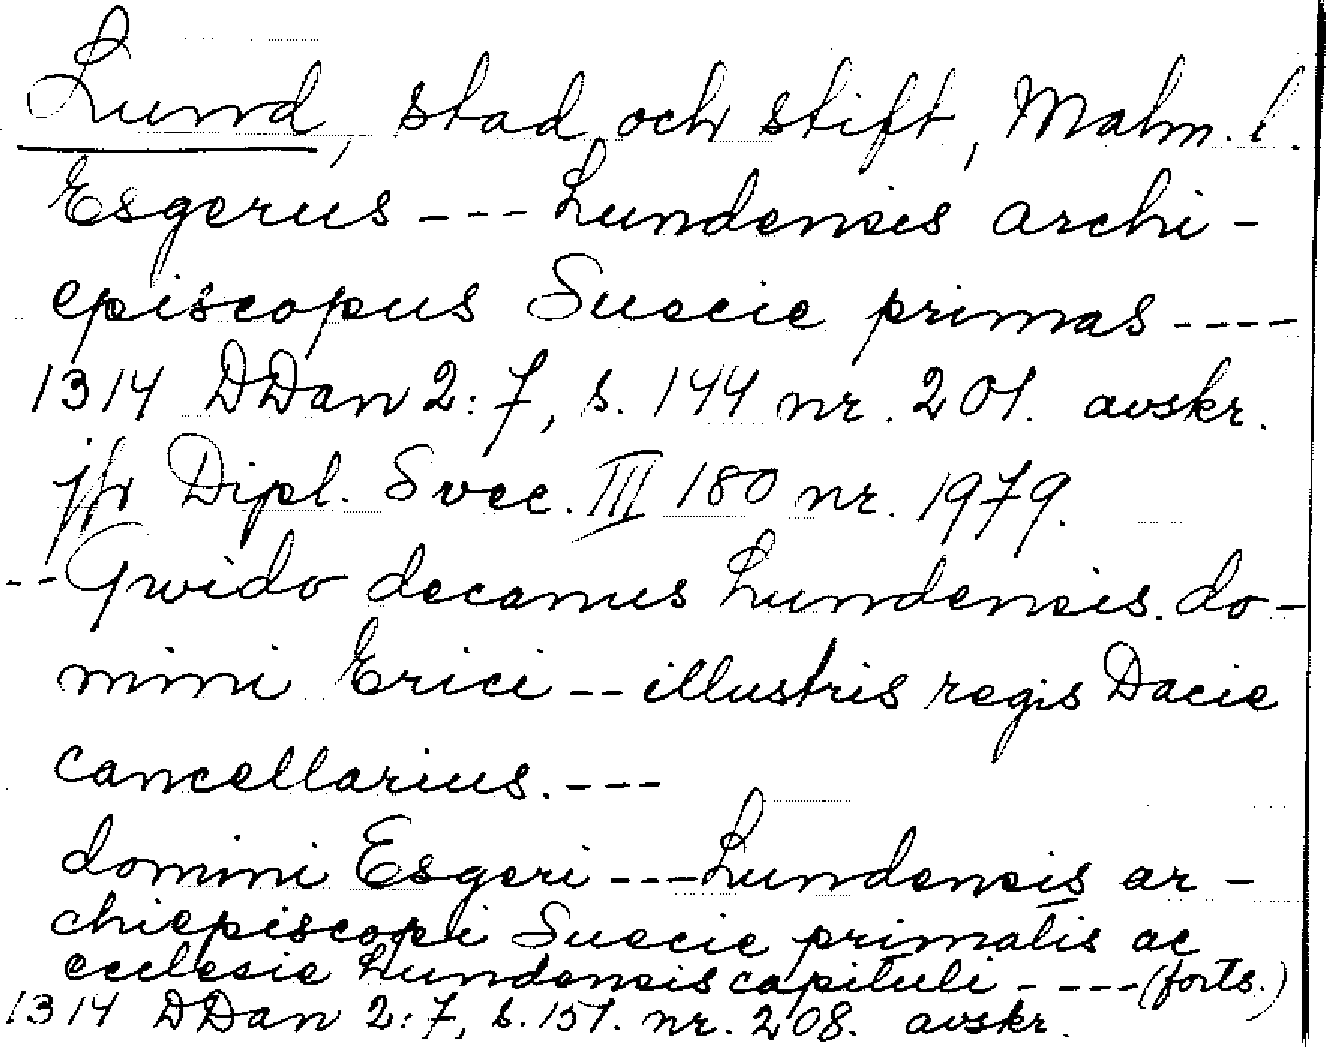 Lund, stad och stift, Malm. l.
Esgerus --- Lundensis archi-
episcopus Suecie primas ----
1314 DDan 2:7, s. 144 nr. 201. avskr.
jfr Dipl. Svec. III 180 nr. 1979.
-- Gwido decanus Lundensis. do-
mini Erici -- illustris regis Dacie
cancellarius. ---
domini Esgeri --- Lundensis ar-
chiepiscopi Suecie primatis ac
ecclesie Lundensis capituli ---- (forts.)
1314 DDan 2:7, s. 151. nr. 208. avskr.